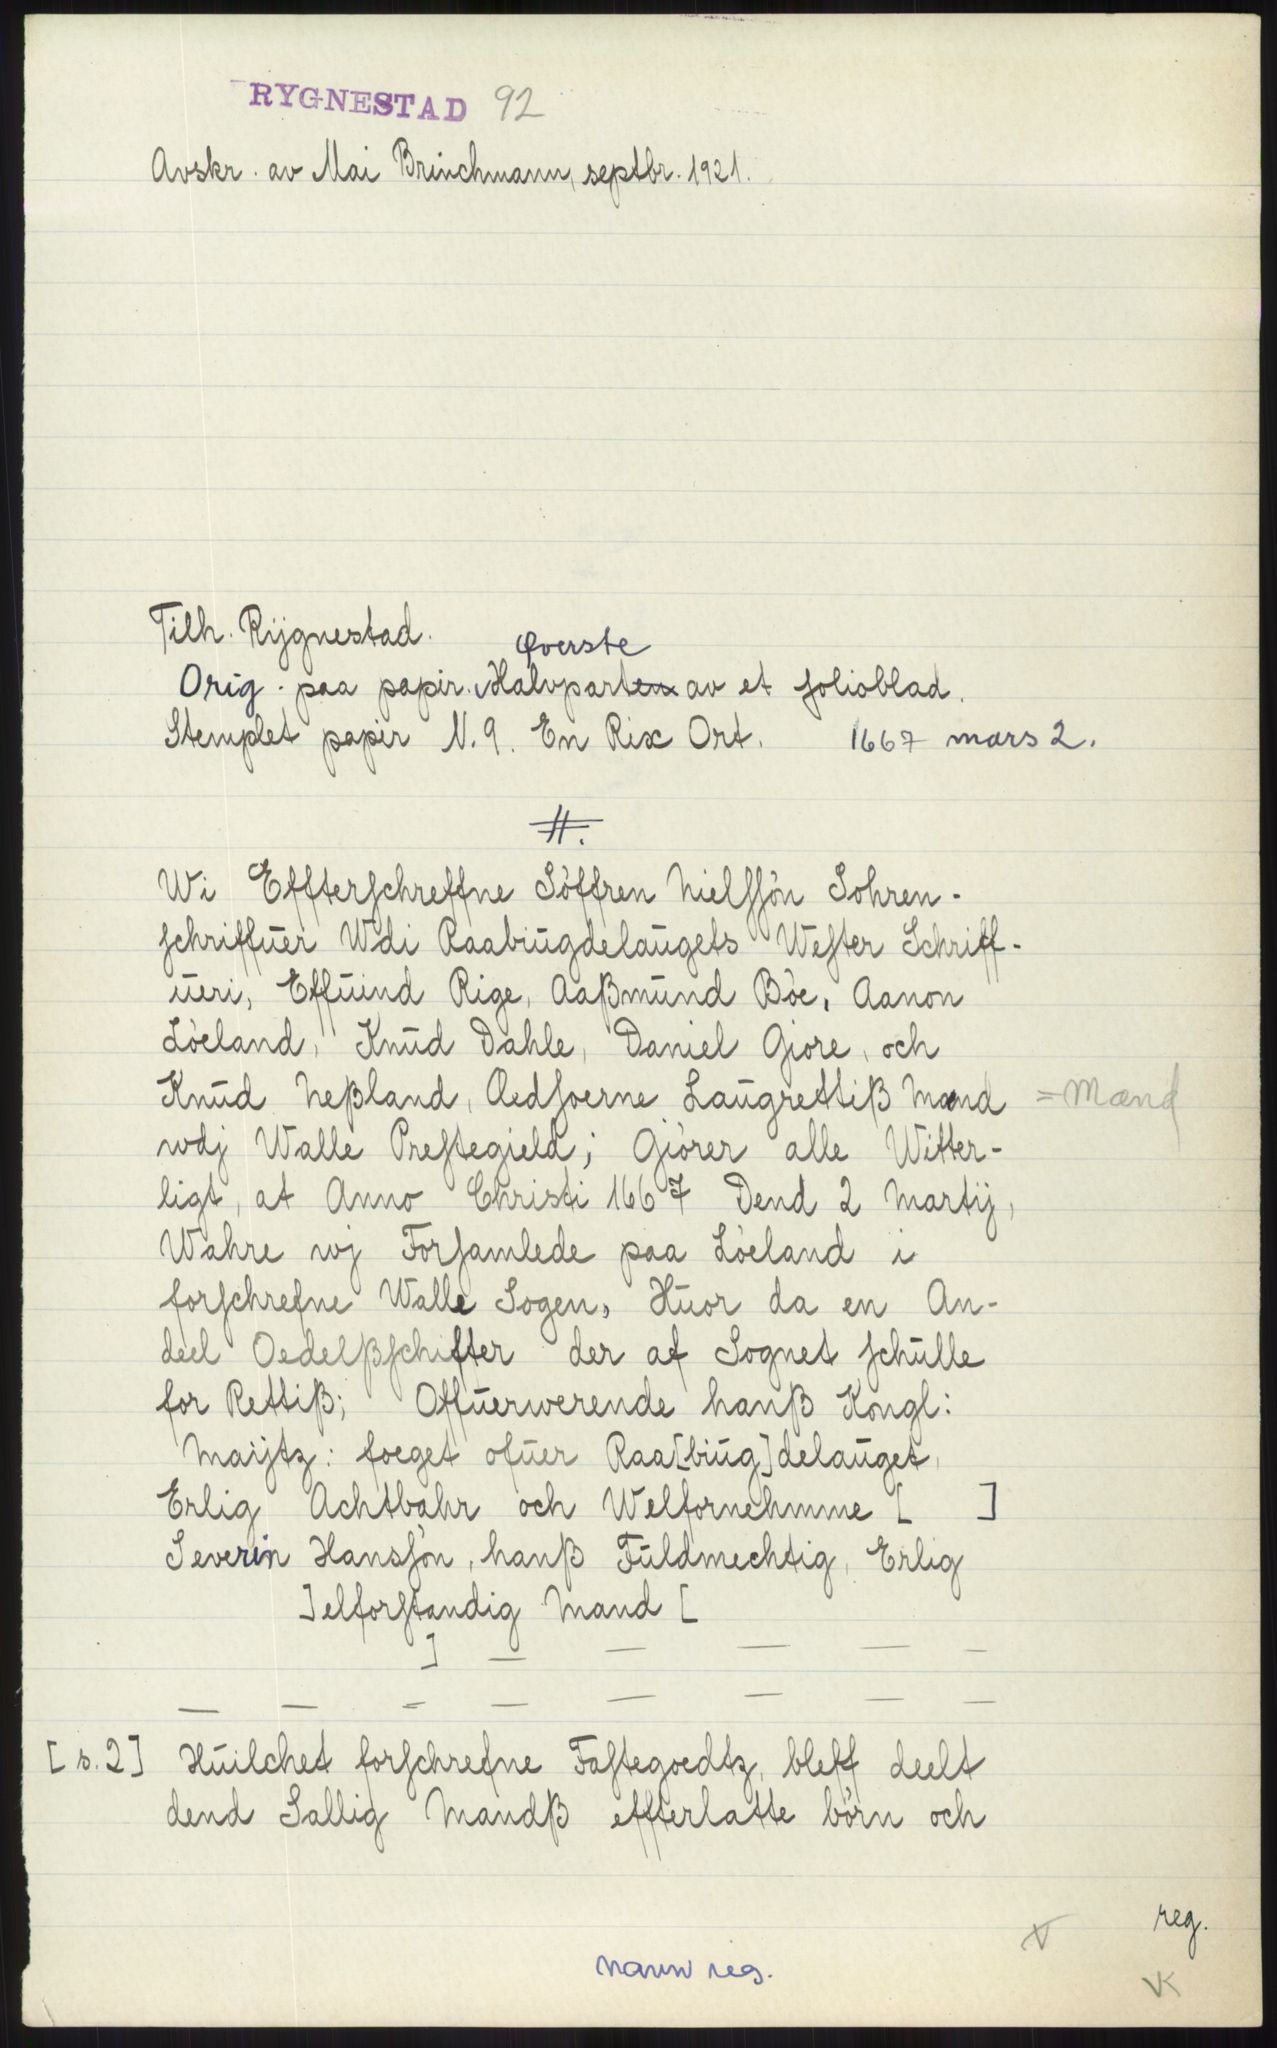 RYGNESTAD 92
Avskr. av Mai Brinchmann, septbr. 1921.
Tilh. Rygnestad.
Øverste
Orig. paa papir. Halvparten av et folioblad.
Stemplet papir N. 9. En Rix Ort. 1667 mars 2.
#.
Wi Effterschreffne Søffren Nielssøn Sohren-
schriffuer Wdi Raabiugdelaugets Wester Schriff-
ueri, Effuind Rige, Aaßmund Bøe, Aanon
Løeland, Knud Dahle, Daniel Giore, och
Knud Neßland, Oedsoerne Laugrettiß Mænd = Mænd
wdj Walle Prestegield; Giører alle Witter-
ligt, at Anno Christi 1667 Dend 2 Martij,
Wahre wj Forsamlede paa Løeland i
forschrefne Walle Sogen, Huor da en An-
deel Oedelßschifter der af Sognet schulle
for Rettiß; Offuerwerende hanß Kongl:
Maijtz: foeget ofuer Raa[biug]delauget,
Erlig Achtbahr och Welfornehmme [ ]
Severin Hansøn, hanß Fuldmechtig, Erlig
]elforstandig Mand [
] — — — — —
— — — — — — — —
[s. 2] Huilchet forschrefne Fastegoedtz, bleff deelt
dend Sallig Mandß effterlatte børn och
reg.
navn reg.
VK